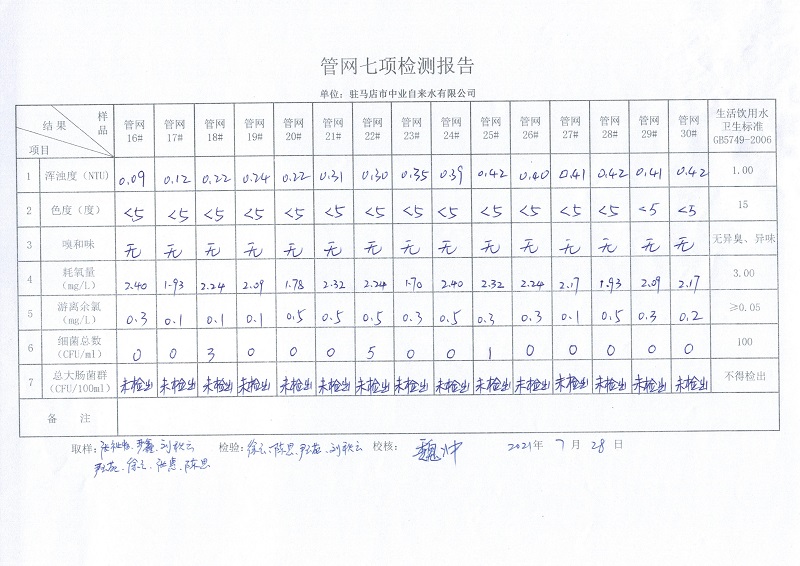 管网七项检测报告
单位：驻马店市中业自来水有限公司
结果 样品 项目 管网16# 管网17# 管网18# 管网19# 管网20# 管网21# 管网22# 管网23# 管网24# 管网25# 管网26# 管网27# 管网28# 管网29# 管网30# 生活饮用水卫生标准GB5749-2006
1 浑浊度（NTU） 0.09 0.12 0.22 0.24 0.22 0.31 0.30 0.35 0.39 0.42 0.40 0.41 0.42 0.41 0.42 1.00
2 色度（度） <5 <5 <5 <5 <5 <5 <5 <5 <5 <5 <5 <5 <5 <5 <5 15
3 嗅和味 无 无 无 无 无 无 无 无 无 无 无 无 无 无 无 无异臭、异味
4 耗氧量（mg/L） 2.40 1.93 2.24 2.09 1.78 2.32 2.24 1.70 2.40 2.32 2.24 2.17 1.93 2.09 2.17 3.00
5 游离余氯（mg/L） 0.3 0.1 0.1 0.1 0.5 0.5 0.5 0.3 0.5 0.3 0.3 0.1 0.5 0.3 0.2 ≥0.05
6 细菌总数（CFU/ml） 0 0 3 0 0 0 5 0 0 1 0 0 0 0 0 100
7 总大肠菌群（CFU/100ml） 未检出 未检出 未检出 未检出 未检出 未检出 未检出 未检出 未检出 未检出 未检出 未检出 未检出 未检出 未检出 不得检出
备 注
取样： 刘秋云 检验： 陈思 刘秋云 校核： 魏冲 2021年 7月 28日
陈思